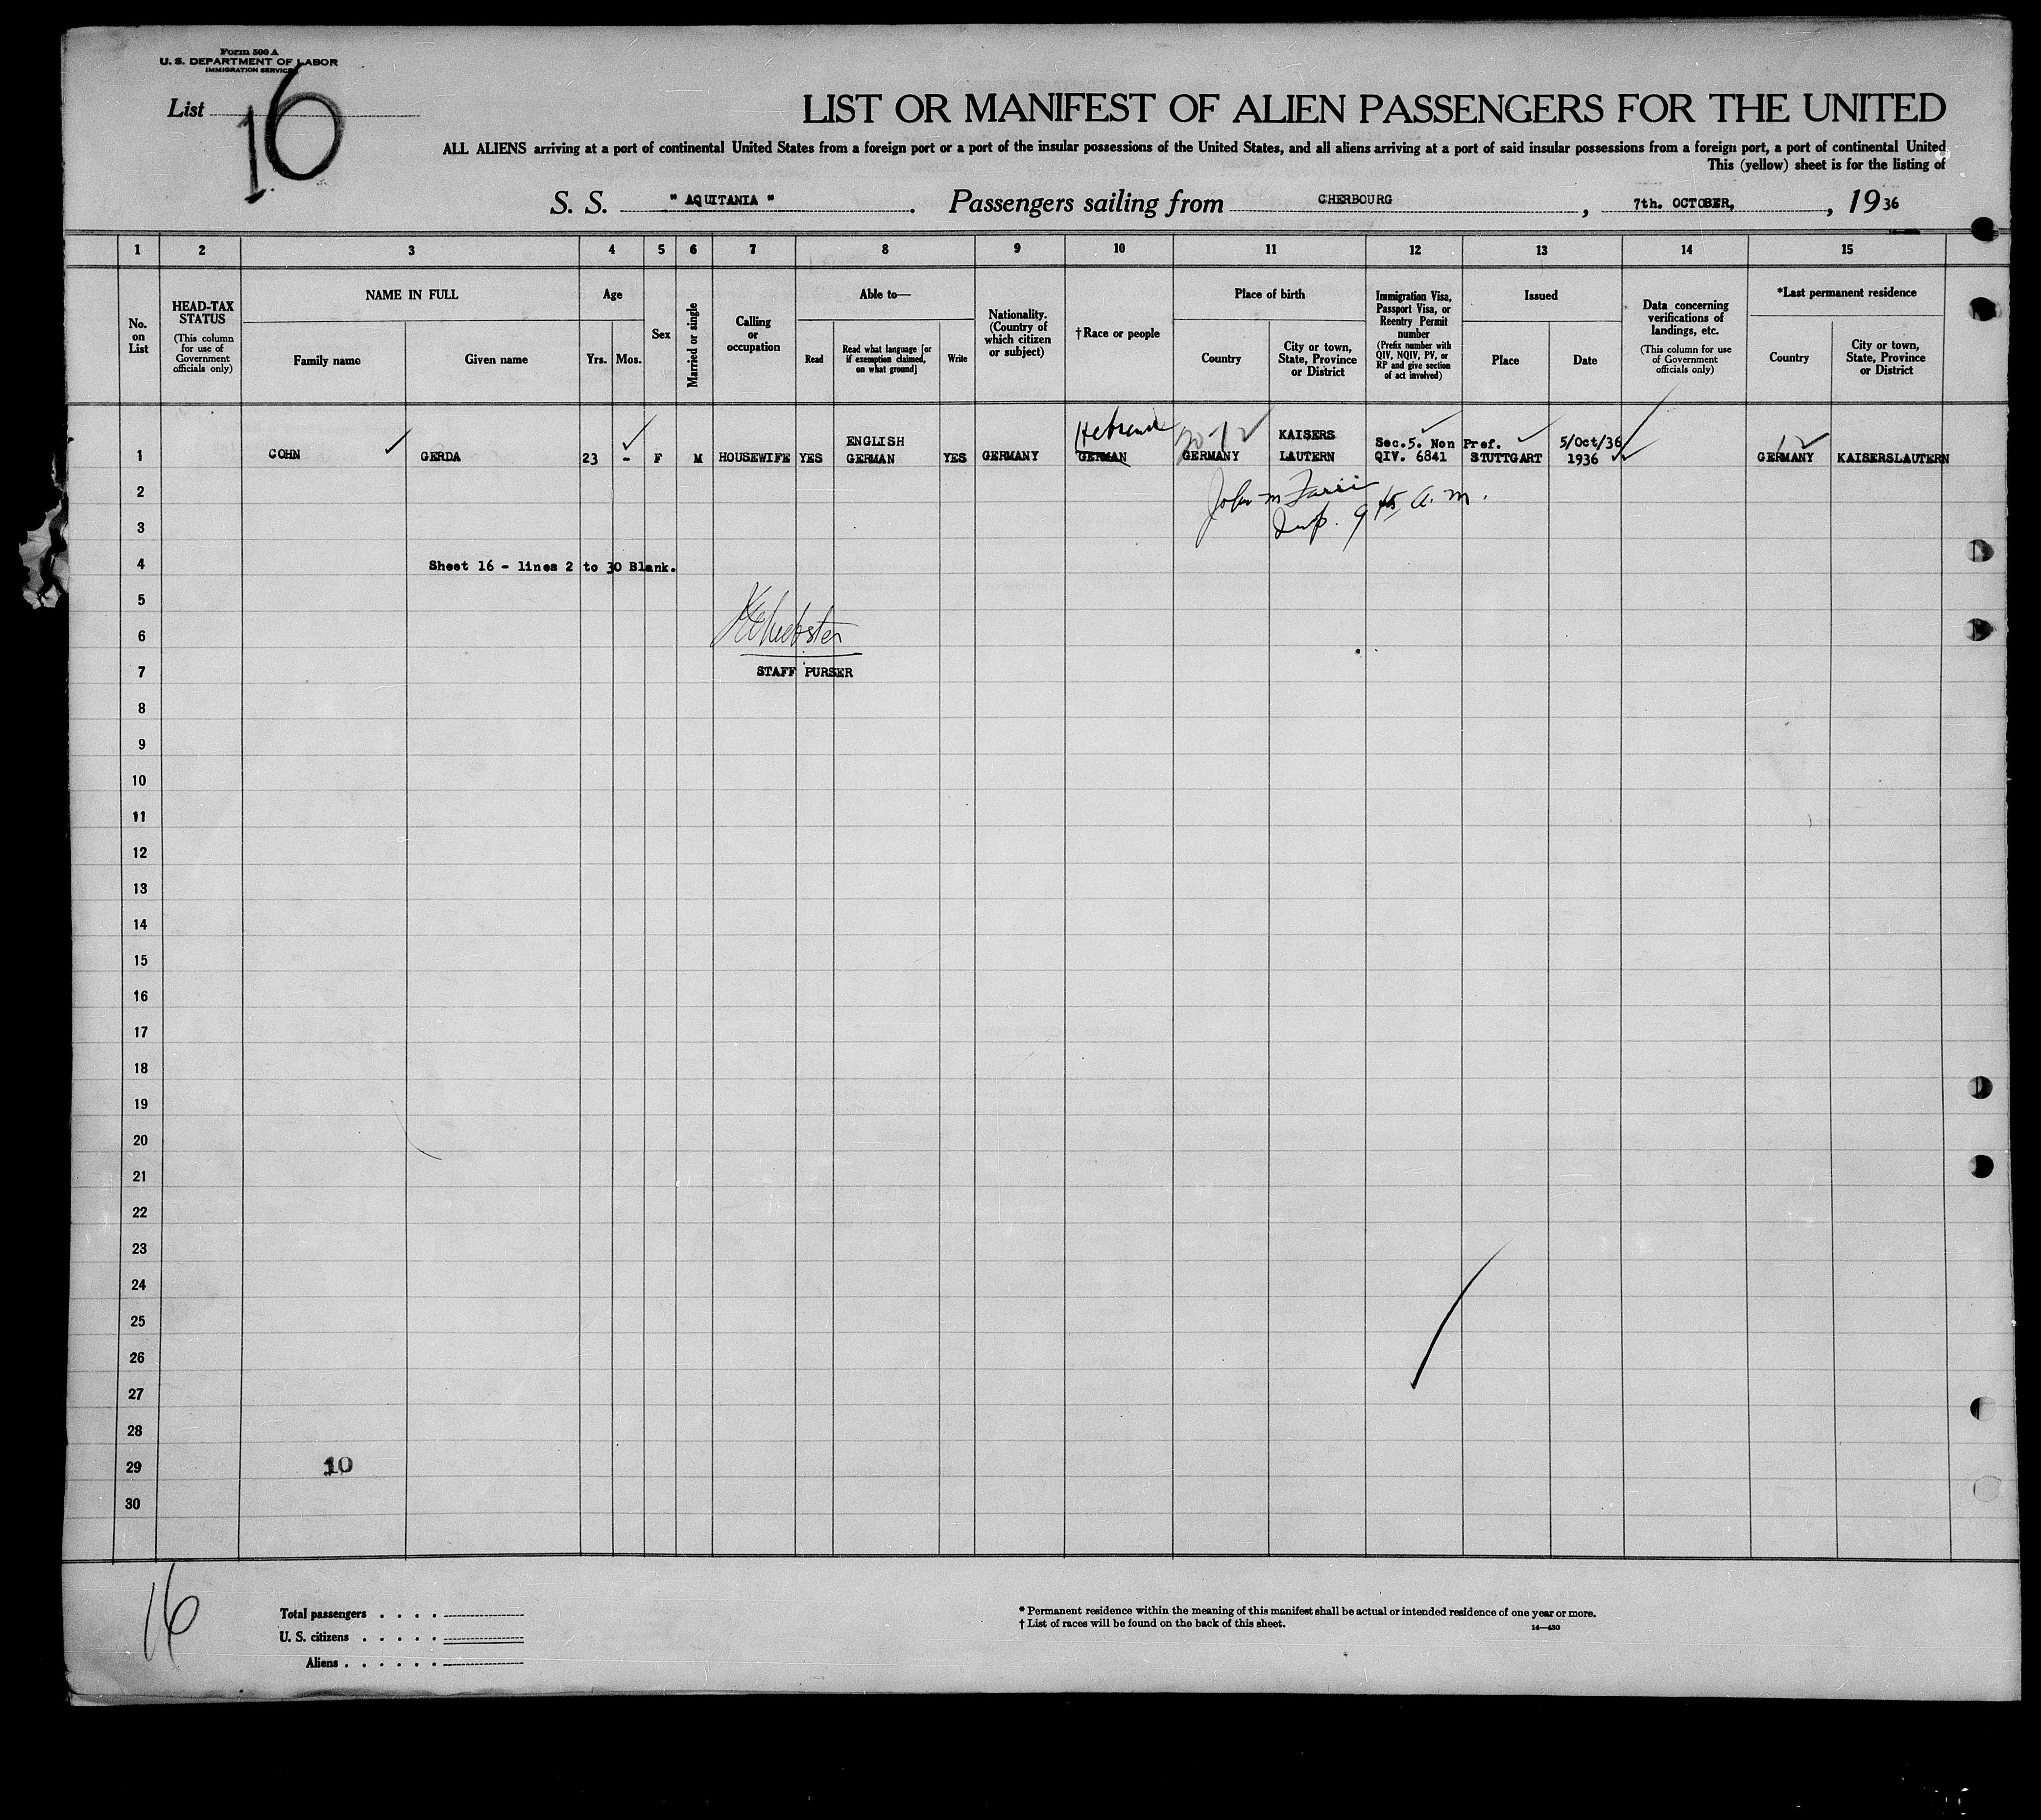 Form 500 A
U. S. DEPARTMENT OF LABOR
IMMIGRATION SERVICE
List 16
LIST OR MANIFEST OF ALIEN PASSENGERS FOR THE UNITED
ALL ALIENS arriving at a port of continental United States from a foreign port or a port of the insular possessions of the United States, and all aliens arriving at a port of said insular possessions from a foreign port, a port of continental United
This (yellow) sheet is for the listing of
S. S. " AQUITANIA ". Passengers sailing from CHERBOURG, 7th. OCTOBER, , 1936
1 2 3 4 5 6 7 8 9 10 11 12 13 14 15
No. on List
HEAD-TAX STATUS
(This column for use of Government officials only)
NAME IN FULL
Family name
Given name
Age
Yrs. Mos.
Sex
Married or single
Calling or occupation
Able to—
Read
Read what language [or if exemption claimed, on what ground]
Write
Nationality. (Country of which citizen or subject)
† Race or people
Place of birth
Country
City or town, State, Province or District
Immigration Visa, Passport Visa, or Reentry Permit number
(Prefix number with QIV, NQIV, PV, or RP and give section of act involved)
Issued
Place
Date
Data concerning verifications of landings, etc.
(This column for use of Government officials only)
*Last permanent residence
Country
City or town, State, Province or District
1 COHN GERDA 23 - F M HOUSEWIFE YES ENGLISH GERMAN YES GERMANY Hebrew GERMAN GERMANY KAISERS LAUTERN Sec.5. Non Pref. QIV. 6841 STUTTGART 5/Oct/36 1936 GERMANY KAISERSLAUTERN
2
John m
3
Insp. 9 45 a. m.
4 Sheet 16 - lines 2 to 30 Blank.
5
6
Webster
7 STAFF PURSER
8
9
10
11
12
13
14
15
16
17
18
19
20
21
22
23
24
25
26
27
28
29 10
30
16
Total passengers . . . .
U. S. citizens . . . . .
Aliens . . . . . .
* Permanent residence within the meaning of this manifest shall be actual or intended residence of one year or more.
† List of races will be found on the back of this sheet.
14—430